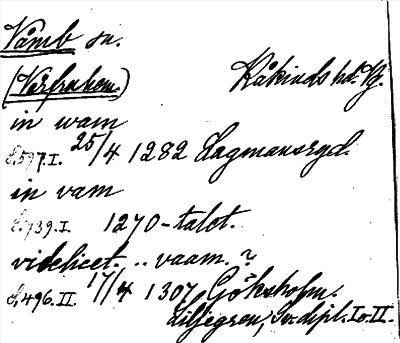 Våmb sn.
(Vårfruhem.) Kåkinds hd. Vg.
in wam
S. 597. I. 25/4 1282 Lagmansryd.
in vam
S. 739. I. 1270-talet.
videlicet. .. vaam. ?
S. 496. II. 17/4 1307, Göksholm.
Liljegren, Sv. dipl. I o. II.